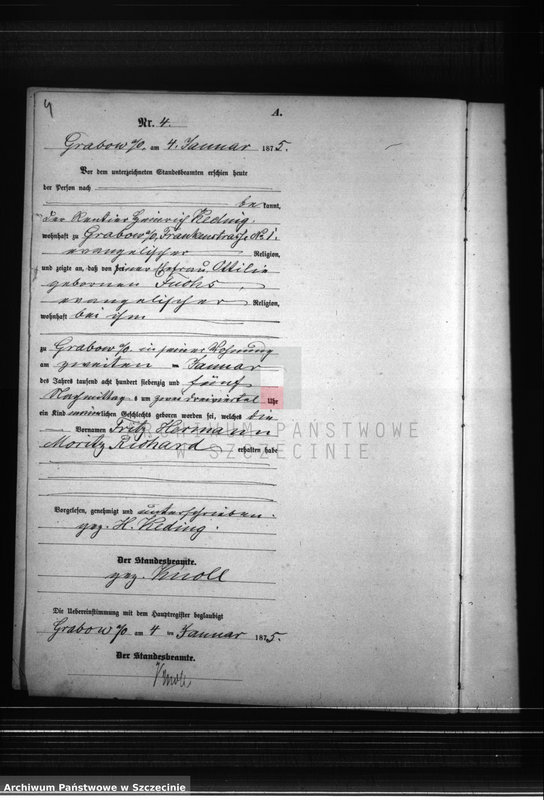 4
A.
Nr. 4.
Grabow a/O. am 4. Januar 1875.
Vor dem unterzeichneten Standesbeamten erschien heute
der Person nach
be kannt,
der Rentier Heinrich Reding,
wohnhaft zu Grabow a/O, Frankenstraße No 1.
evangelischer Religion,
und zeigte an, daß von seiner Ehefrau Ottilie
gebornen Fuchs,
evangelischer Religion,
wohnhaft bei ihm
zu Grabow a/O. in seiner Wohnung
am zweiten Januar
des Jahres tausend acht hundert siebenzig und fünf
Nachmittags um zwei dreiviertel Uhr
ein Kind männlichen Geschlechts geboren worden sei, welches die
Vornamen Fritz Hermann
Moritz Richard erhalten habe
ARCHIWUM PAŃSTWOWE
W SZCZECINIE
Vorgelesen, genehmigt und unterschrieben.
gez. H. Reding.
Der Standesbeamte.
gez. Knoll
Die Uebereinstimmung mit dem Hauptregister beglaubigt
Grabow a/O am 4 ten Januar 1875
Der Standesbeamte.
Knoll
Archiwum Państwowe w Szczecinie